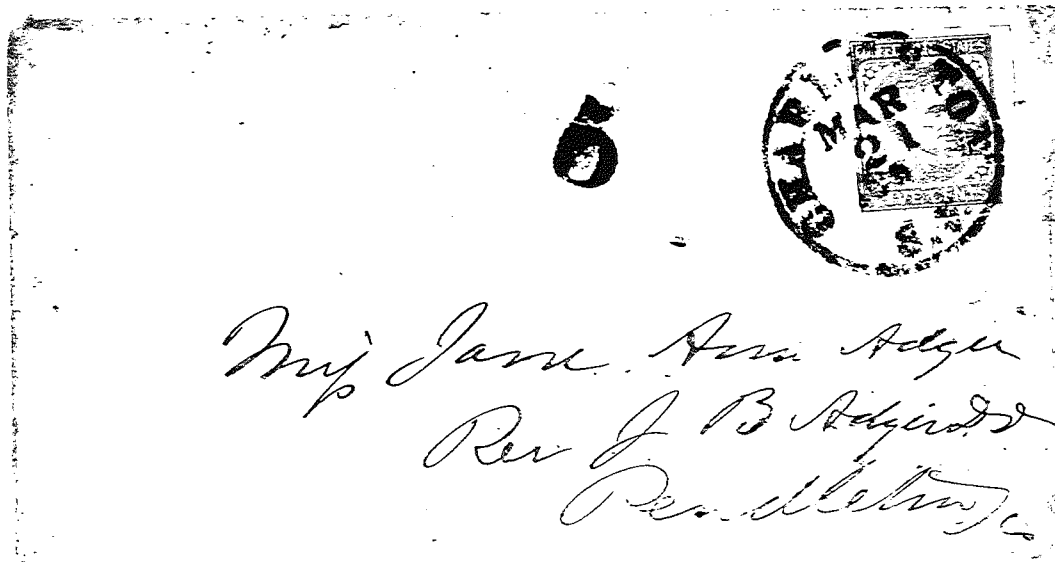 CHARLESTON
MAR
1
Miss Jane Ann Adger
Rev J B Adger DD
Pendleton